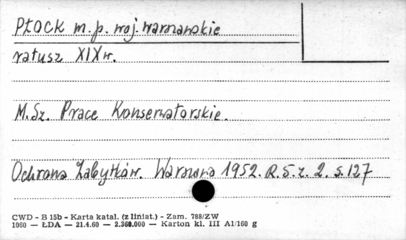 PŁOCK m.p. woj. warszawskie
ratusz XIX w.
M.Sz. Prace Konserwatorskie.
Ochrona Zabytków. Warszawa 1952. R.5. z. 2. s. 127
CWD - B 15b - Karta katal. (z liniat.) - Zam. 788/ZW
1960 — ŁDA — 21.4.60 — 2.360.000 — Karton kl. III A1/160 g